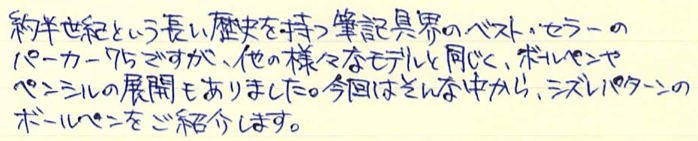 約半世紀という長い歴史を持つ筆記具界のベスト・セラーの
パーカー75ですが、他の様々なモデルと同じく、ボールペンや
ペンシルの展開もありました。今回はそんな中から、シズレパターンの
ボールペンをご紹介します。